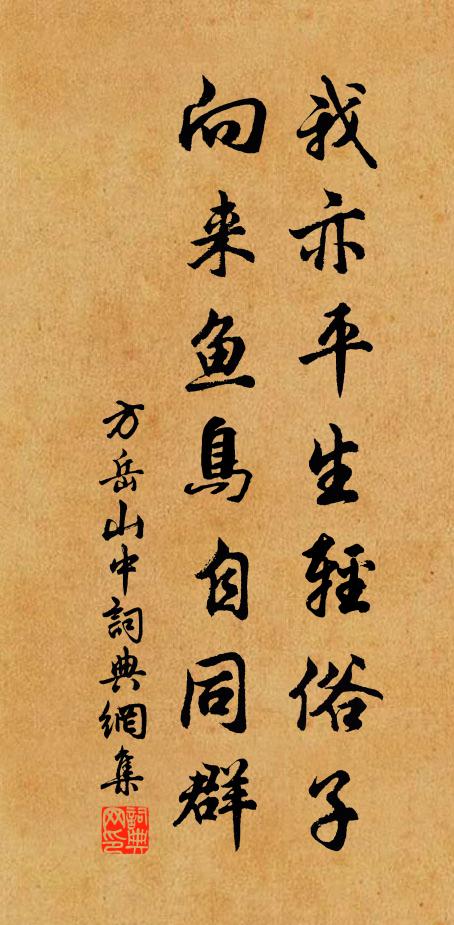 我亦平生輕俗子
向来鱼鳥自同群
方岳山中詞典網集
詞典网印